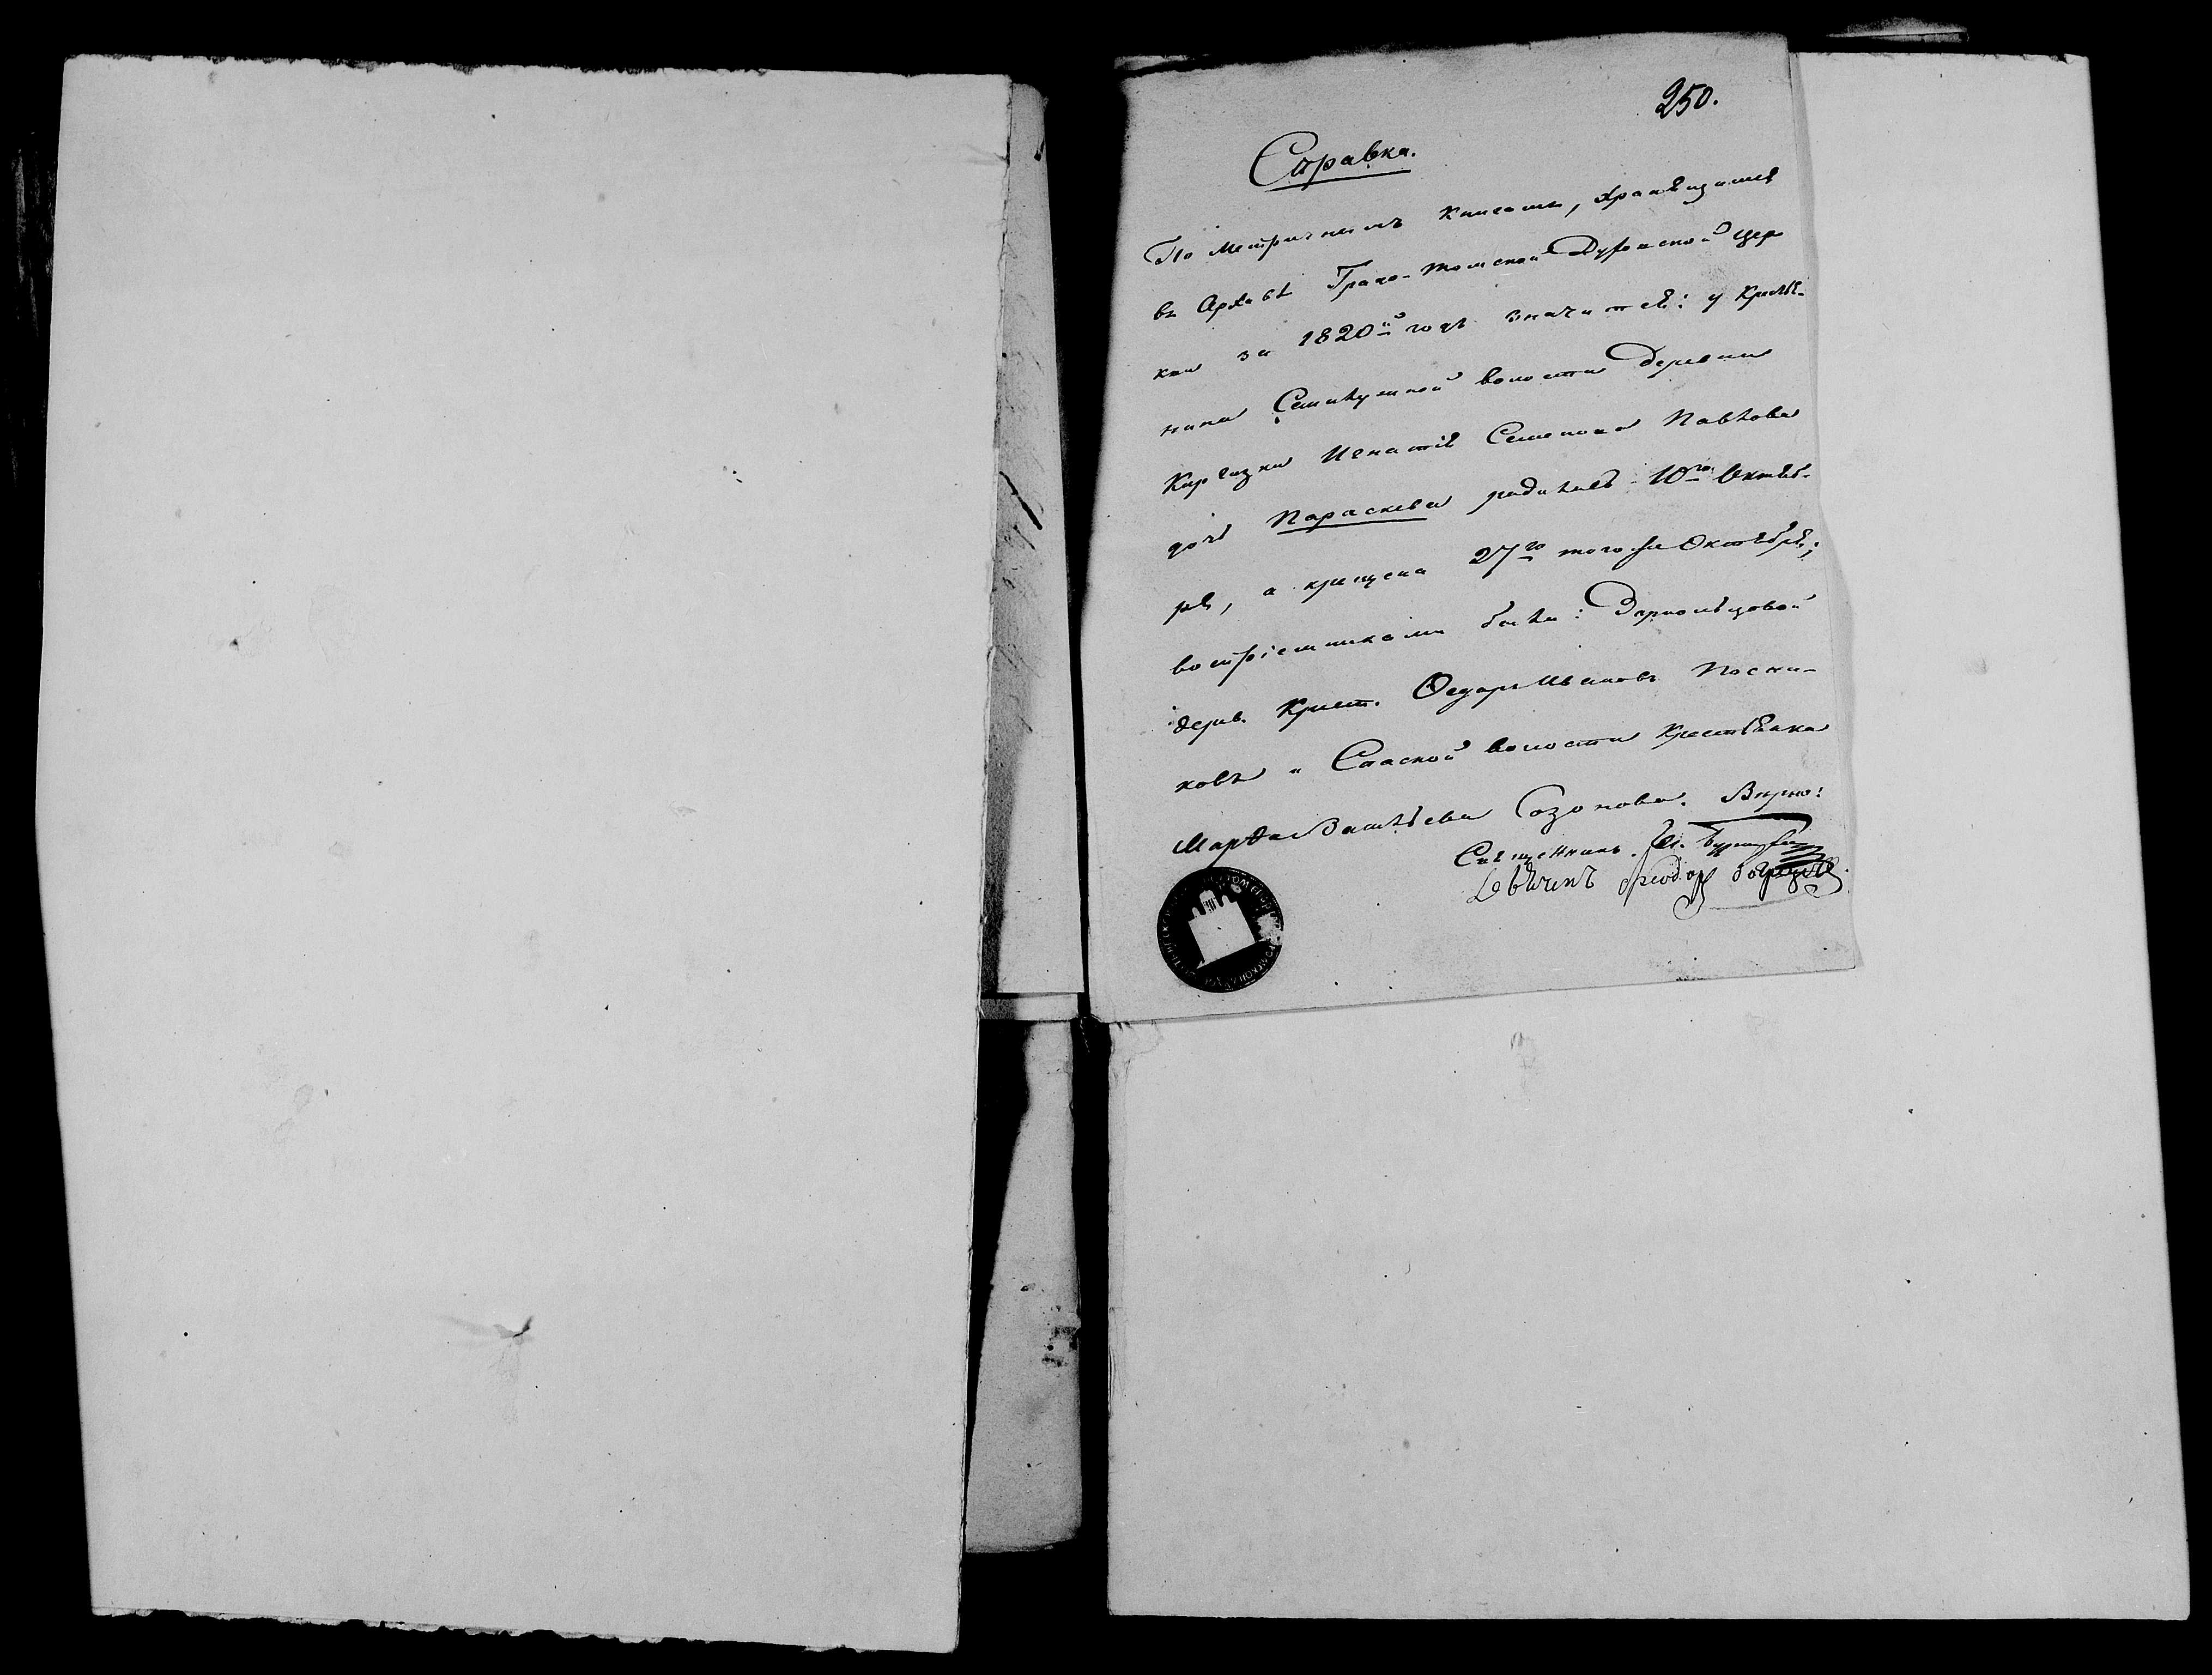 250.
Справка.
По метричнымъ книгамъ, хранящимся
въ Архивѣ Градо-Томской Духовской Цер
кви за 1820й годъ значится: у крестья-
нина Семилужной волости деревни
Игнатія Семенова Павлова
дочь Параскева родилась 10го Октяб-
ря, а крещена 27го того же Октября;
воспріемниками были:
дерев. Крест. Ѳедоръ Ивановъ Посни-
ковъ и Спаской волости крестьянка
Марѳа Васильева Созонова. Вѣрно:
Священникъ
Дьячекъ Феодоръ